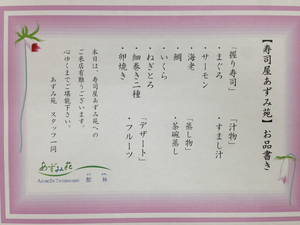 【寿司屋あずみ苑】お品書き
「握り寿司」
・まぐろ
・サーモン
・海老
・鯛
・いくら
・ねぎとろ
・細巻き二種
・卵焼き
「汁物」
・すまし汁
「蒸し物」
・茶碗蒸し
「デザート」
・フルーツ
本日は、寿司屋あずみ苑への
ご来店有難うございます。
心ゆくまでご堪能下さい。
あずみ苑 スタッフ一同
あずみ苑